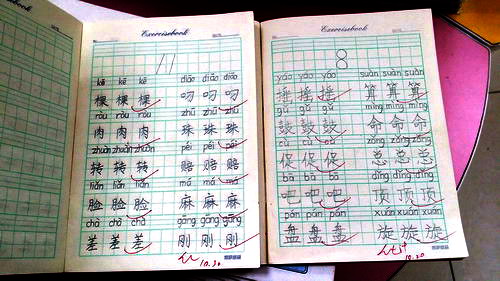 Exercisebook
11
kē kē kē diāo diāo diāo
棵 棵 棵 叼 叼 叼
ròu ròu ròu zhū zhū zhū
肉 肉 肉 珠 珠 珠
zhuǎn zhuǎn zhuǎn péi péi péi
转 转 转 赔 赔 赔
liǎn liǎn liǎn má má má
脸 脸 脸 麻 麻 麻
chà chà chà gāng gāng gāng
差 差 差 刚 刚 刚
10.30
Exercisebook
8
yáo yáo yáo suàn suàn suàn
摇 摇 摇 算 算 算
gǔ gǔ gǔ mìng mìng mìng
鼓 鼓 鼓 命 命 命
cù cù cù zǒng zǒng zǒng
促 促 促 总 总 总
bā bā bā dǐng dǐng dǐng
吧 吧 吧 顶 顶 顶
pán pán pán xuán xuán xuán
盘 盘 盘 旋 旋 旋
10.20